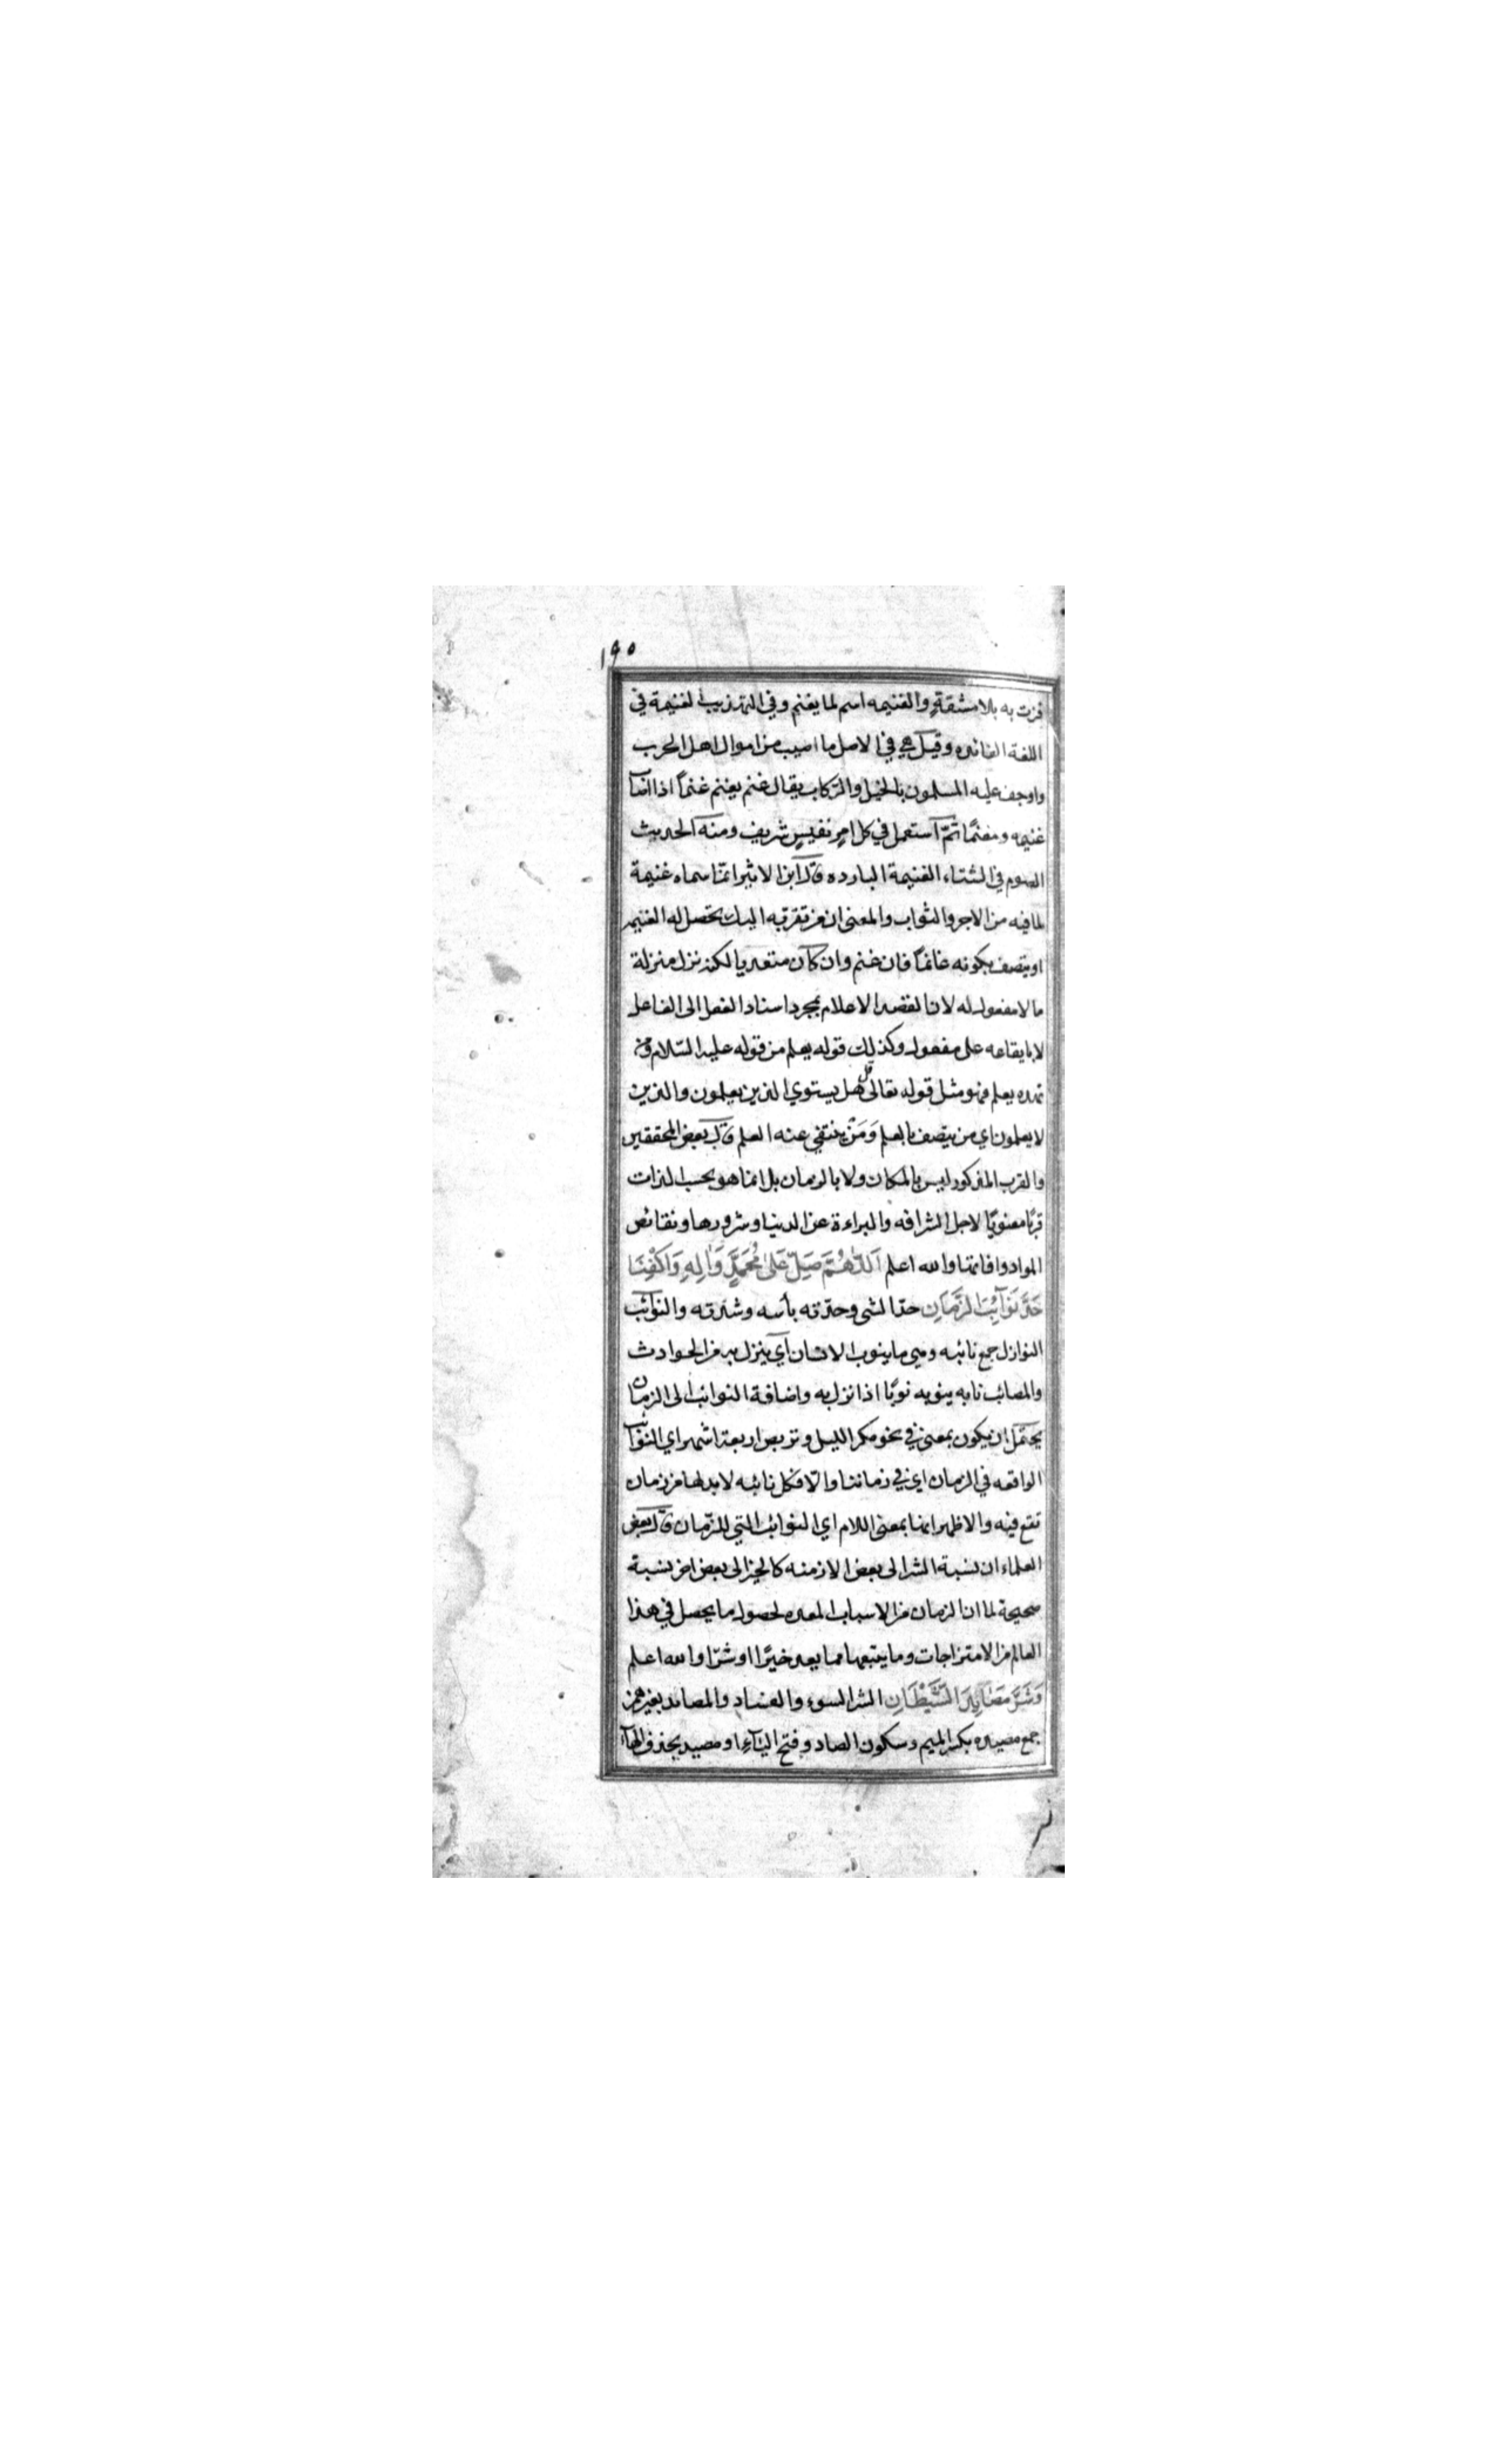 ١٩٥
فزت به بلا مشقةٍ والغنيمه اسم لما يغنم وفي التهذيب الغنيمة في
اللغة الفائده وقيل هي في الاصل ما اصيب من اموال اهل الحرب
واوجف عليه المسلمون بالخيل والركاب يقال غنم يغنم غنماً اذا اصاب
غنيمه ومغنمًا ثمّ استعمل في كل امرٍ نفيسٍ شريف ومنه الحديث
الصوم في الشتاء الغنيمة البارده قال ابن الاثير انمّا سماه غنيمة
لما فيه من الاجر والثواب والمعنى ان من تقرّبه اليك تحصل له الغنيمه
او يتصف بكونه غانماً فان غنم وان كان متعديا لكنه نزل منزلة
ما لا مفعول له لان القصد الاعلام بمجرد اسناد الفعل الى الفاعل
لا بايقاعه على مفعول وكذلك قوله يعلم من قوله عليه السّلام ومن
تهده يعلم فهو مثل قوله تعالى قل هل يستوي الذين يعلمون والذين
لا يعلمون اي من يتصف بالعلم وَمَنْ ينتفي عنه العلم قال بعض المحققين
والقرب المذكور ليس بالمكان ولا بالزمان بل انما هو بحسب الذات
قربًا معنويًا لاجل الشرافه والبراءة عن الدنيا وشرورها ونقائص
المواد وافاتها والله اعلم اَللّٰهُمَّ صَلِّ عَلىٰ مُحَمَّدٍ وَاٰلِهِ وَاكْفِنَا
حَدَّ نَوَآئِبِ الزَّمَانِ حدّ الشى وحدّته بأسه وشدّته والنوائب
النوازل جمع نائبه وهي ما ينوب الانسان اي ينزل به من الحوادث
والمصائب نابه ينوبه نوبًا اذا نزل به واضافة النوائب الى الزمان
يحتمل ان يكون بمعنى في نحو مكر الليل وتربص اربعة اشهر اي النوائب
الواقعه في الزمان اي في زماننا والّا فكل نائبه لا بد لها من زمان
تقع فيه والاظهر انها بمعنى اللام اي النوائب التي للزّمان قال بعض
العلماء ان نسبة الشر الى بعض الازمنه كالخير الى بعض اخر نسبة
صحيحة لما ان الزمان من الاسباب المعده لحصول ما يحصل في هذا
العالم من الامتزاجات وما يتبعها مما يعد خيرًا او شرّا والله اعلم
وَشَرَّ مَصَايِدِ الشَّيْطَانِ الشر السوء والفساد والمصايد بغير همز
جمع مصيده بكسر الميم وسكون الصاد وفتح اليآء او مصيد بحذف الهآء